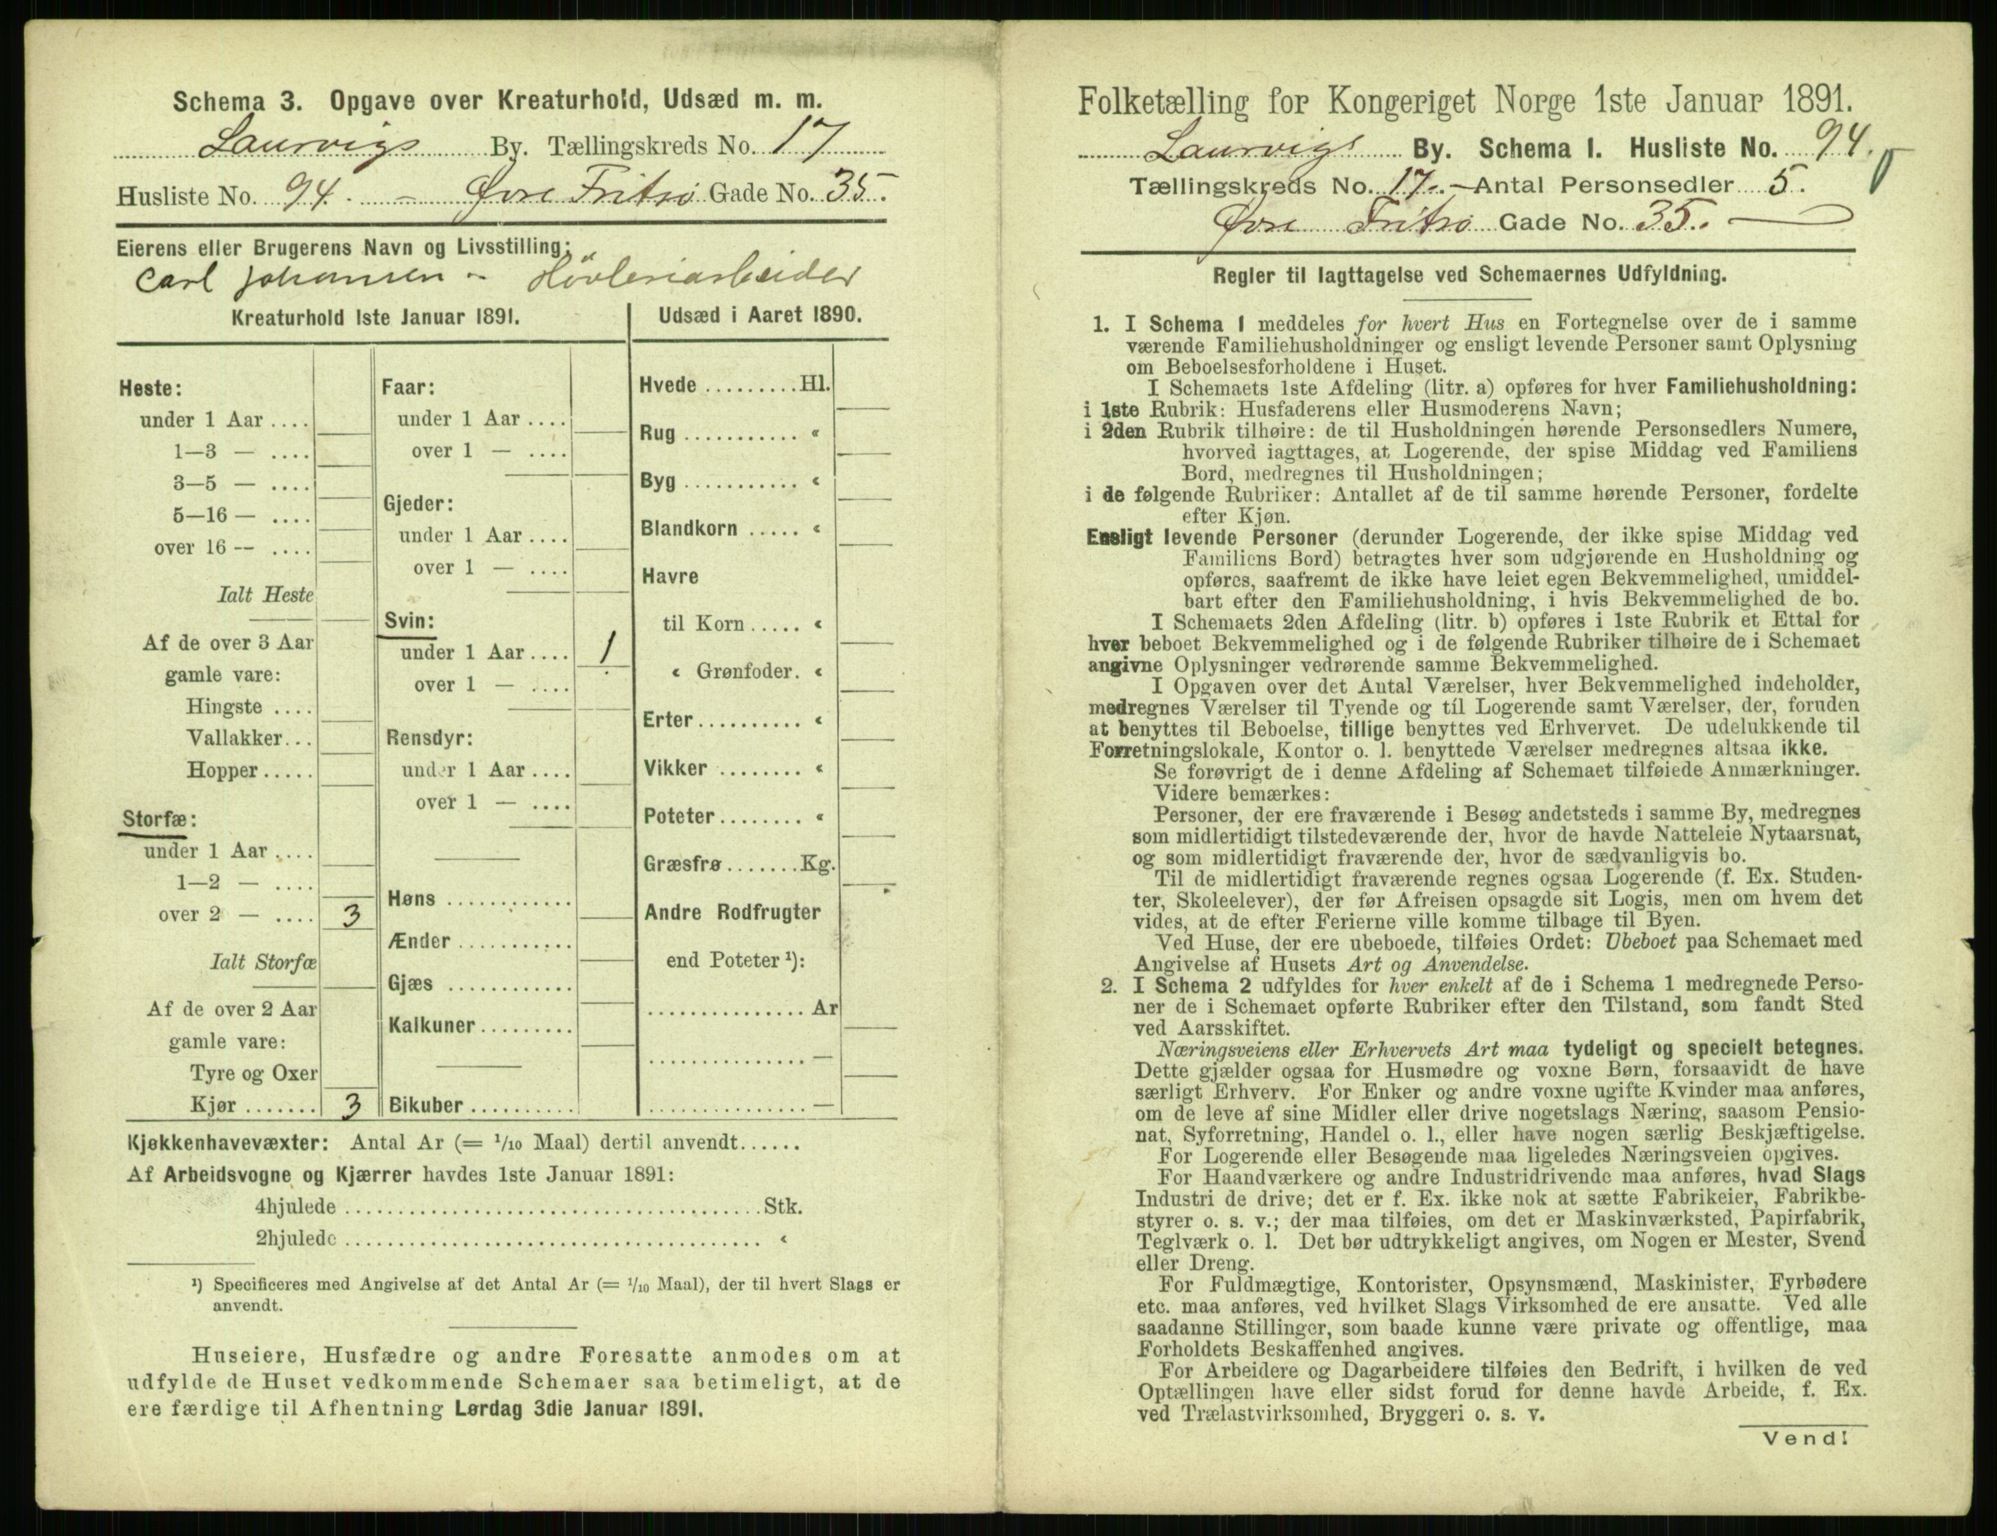 Schema 3. Opgave over Kreaturhold, Udsæd m. m.
Laurvigs By. Tællingskreds No. 17
Husliste No. 94. – Øvre Fritsø Gade No. 35.
Eierens eller Brugerens Navn og Livsstilling:
Carl Johansen – Høvleriarbeider
Kreaturhold 1ste Januar 1891.
Heste:
under 1 Aar ....
1—3 — ....
3—5 — ....
5—16 — ....
over 16 — ....
Ialt Heste
Af de over 3 Aar
gamle vare:
Hingste ....
Vallakker...
Hopper.....
Storfæ:
under 1 Aar ....
1—2 — ....
over 2 — .... 3
Ialt Storfæ
Af de over 2 Aar
gamle vare:
Tyre og Oxer
Kjør ....... 3
Faar:
under 1 Aar ....
over 1 — ....
Gjeder:
under 1 Aar ....
over 1 — ....
Svin:
under 1 Aar .... 1.
over 1 — ....
Rensdyr:
under 1 Aar ....
over 1 — ....
Høns ...........
Ænder ...........
Gjæs ...........
Kalkuner.........
Bikuber ..........
Udsæd i Aaret 1890.
Hvede .........Hl.
Rug ........... «
Byg ........... «
Blandkorn ..... «
Havre
til Korn ..... «
« Grønfoder. «
Erter.......... «
Vikker ........ «
Poteter........ «
Græsfrø.......Kg.
Andre Rodfrugter
end Poteter ¹):
............... Ar
............... —
............... —
Kjøkkenhavevæxter: Antal Ar (= 1/10 Maal) dertil anvendt......
Af Arbeidsvogne og Kjærrer havdes 1ste Januar 1891:
4hjulede ....................................... Stk.
2hjulede ....................................... «
¹) Specificeres med Angivelse af det Antal Ar (= 1/10 Maal), der til hvert Slags er
anvendt.
Huseiere, Husfædre og andre Foresatte anmodes om at
udfylde de Huset vedkommende Schemaer saa betimeligt, at de
ere færdige til Afhentning Lørdag 3die Januar 1891.
Folketælling for Kongeriget Norge 1ste Januar 1891.
Laurvigs By. Schema 1. Husliste No. 94.
Tællingskreds No. 17. – Antal Personsedler 5.
Øvre Fritsø Gade No. 35. —
Regler til Iagttagelse ved Schemaernes Udfyldning.
1. I Schema 1 meddeles for hvert Hus en Fortegnelse over de i samme
værende Familiehusholdninger og ensligt levende Personer samt Oplysning
om Beboelsesforholdene i Huset.
I Schemaets 1ste Afdeling (litr. a) opføres for hver Familiehusholdning:
i 1ste Rubrik: Husfaderens eller Husmoderens Navn;
i 2den Rubrik tilhøire: de til Husholdningen hørende Personsedlers Numere,
hvorved iagttages, at Logerende, der spise Middag ved Familiens
Bord, medregnes til Husholdningen;
i de følgende Rubriker: Antallet af de til samme hørende Personer, fordelte
efter Kjøn.
Ensligt levende Personer (derunder Logerende, der ikke spise Middag ved
Familiens Bord) betragtes hver som udgjørende en Husholdning og
opføres, saafremt de ikke have leiet egen Bekvemmelighed, umiddel-
bart efter den Familiehusholdning, i hvis Bekvemmelighed de bo.
I Schemaets 2den Afdeling (litr. b) opføres i 1ste Rubrik et Ettal for
hver beboet Bekvemmelighed og i de følgende Rubriker tilhøire de i Schemaet
angivne Oplysninger vedrørende samme Bekvemmelighed.
I Opgaven over det Antal Værelser, hver Bekvemmelighed indeholder,
medregnes Værelser til Tyende og til Logerende samt Værelser, der, foruden
at benyttes til Beboelse, tillige benyttes ved Erhvervet. De udelukkende til
Forretningslokale, Kontor o. l. benyttede Værelser medregnes altsaa ikke.
Se forøvrigt de i denne Afdeling af Schemaet tilføiede Anmærkninger.
Videre bemærkes:
Personer, der ere fraværende i Besøg andetsteds i samme By, medregnes
som midlertidigt tilstedeværende der, hvor de havde Natteleie Nytaarsnat,
og som midlertidigt fraværende der, hvor de sædvanligvis bo.
Til de midlertidigt fraværende regnes ogsaa Logerende (f. Ex. Studen-
ter, Skoleelever), der før Afreisen opsagde sit Logis, men om hvem det
vides, at de efter Ferierne ville komme tilbage til Byen.
Ved Huse, der ere ubeboede, tilføies Ordet: Ubeboet paa Schemaet med
Angivelse af Husets Art og Anvendelse.
2. I Schema 2 udfyldes for hver enkelt af de i Schema 1 medregnede Perso-
ner de i Schemaet opførte Rubriker efter den Tilstand, som fandt Sted
ved Aarsskiftet.
Næringsveiens eller Erhvervets Art maa tydeligt og specielt betegnes.
Dette gjælder ogsaa for Husmødre og voxne Børn, forsaavidt de have
særligt Erhverv. For Enker og andre voxne ugifte Kvinder maa anføres,
om de leve af sine Midler eller drive nogetslags Næring, saasom Pensio-
nat, Syforretning, Handel o. l., eller have nogen særlig Beskjæftigelse.
For Logerende eller Besøgende maa ligeledes Næringsveien opgives.
For Haandværkere og andre Industridrivende maa anføres, hvad Slags
Industri de drive; det er f. Ex. ikke nok at sætte Fabrikeier, Fabrikbe-
styrer o. s. v.; der maa tilføies, om det er Maskinværksted, Papirfabrik,
Teglværk o. l. Det bør udtrykkeligt angives, om Nogen er Mester, Svend
eller Dreng.
For Fuldmægtige, Kontorister, Opsynsmænd, Maskinister, Fyrbødere
etc. maa anføres, ved hvilket Slags Virksomhed de ere ansatte. Ved alle
saadanne Stillinger, som baade kunne være private og offentlige, maa
Forholdets Beskaffenhed angives.
For Arbeidere og Dagarbeidere tilføies den Bedrift, i hvilken de ved
Optællingen have eller sidst forud for denne havde Arbeide, f. Ex.
ved Trælastvirksomhed, Bryggeri o. s. v.
Vend!